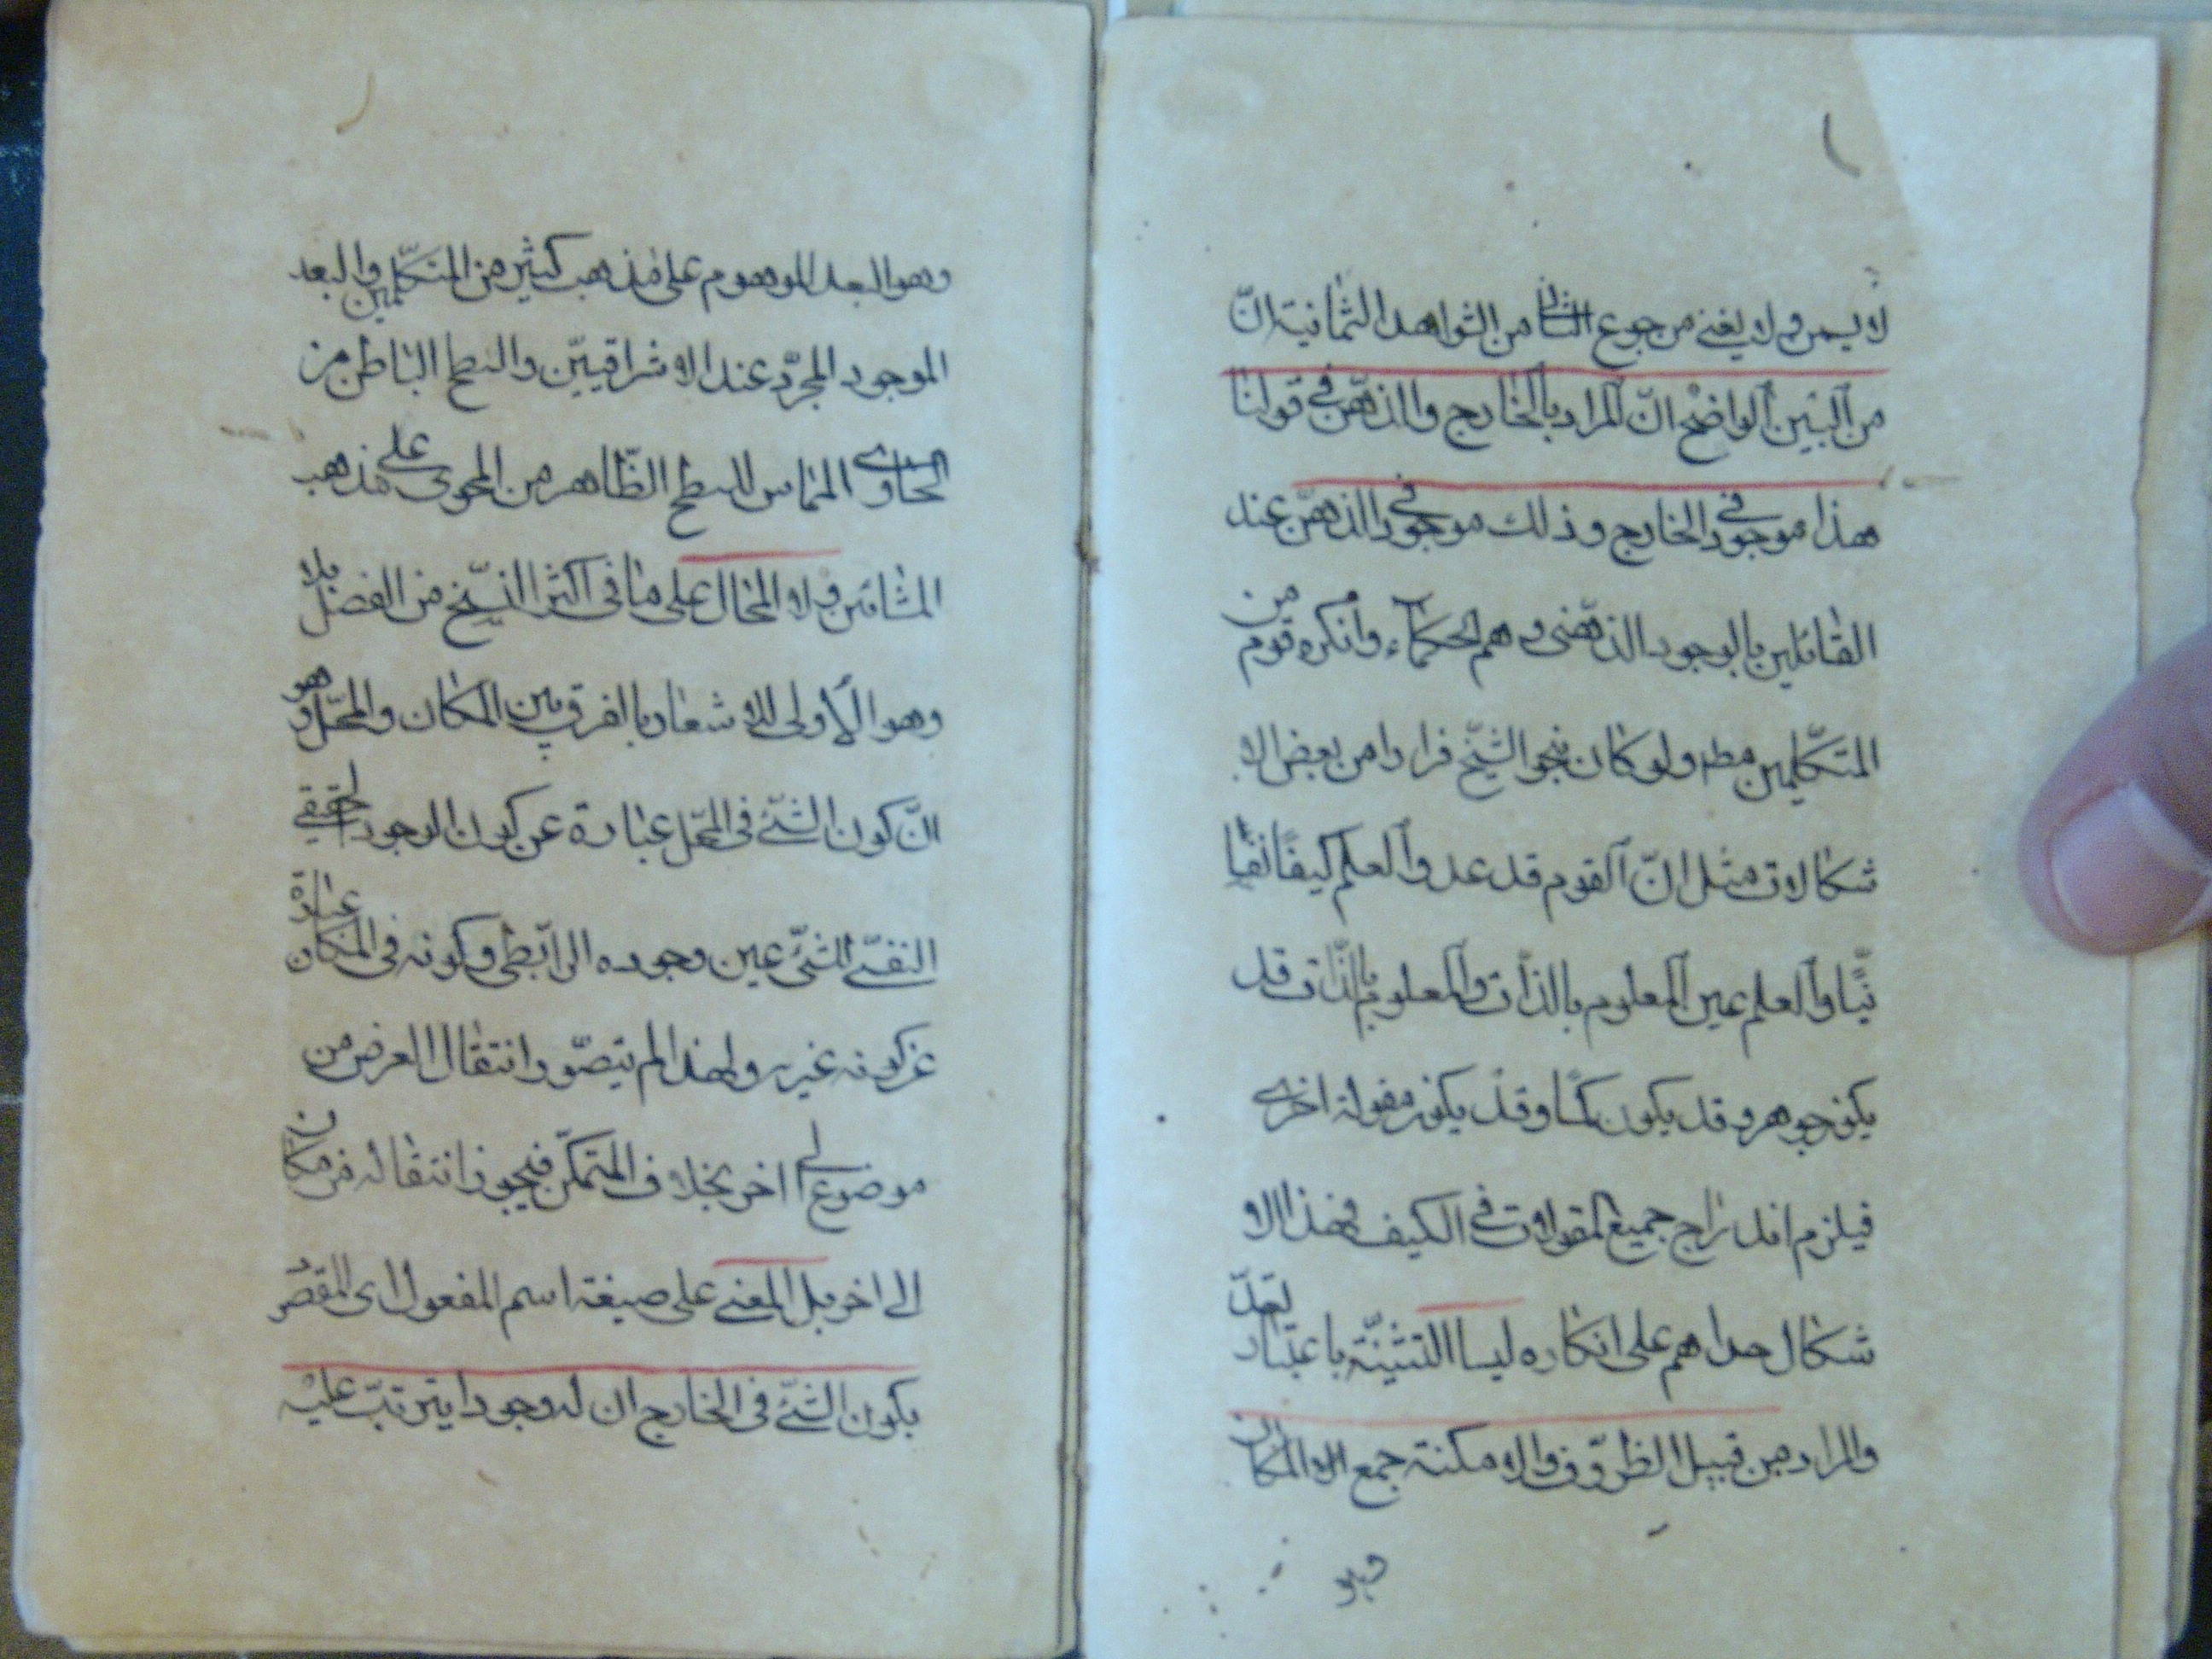 لا يسمن ولا يغني من جوع الثامن الشواهد الثمانية انّ
من البين الواضح انّ المراد بالخارج والذهن في قولنا
هذا موجود في الخارج وذلك موجود في الذهن عند
القائلين بالوجود الذهنى وهم الحكماء وانكره قوم من
المتكلمين مط ولو كان بنحو الشبح فرارا من بعض الا
شكالات مثل انّ القوم قد عدوا العلم كيفا نفسا
نيّا والعلم عين المعلوم بالذات والمعلوم بالذات قد
يكون جوهر وقد يكون كمّا وقد يكون مقولة اخرى
فيلزم اندراج جميع المقولات في الكيف فهذا الا
شكال حداهم على انكاره ليسا التثنية باعتبار تعدّ
والمراد من قبيل الظروف والامكنة جمع المكان
وهو
وهو البعد الموهوم على مذهب كثير من المتكلمين والبعد
الموجود المجرّد عند الاشراقيّين والسطح الباطن من
الحاوى المماس للسطح الظاهر من المحوى على مذهب
المشائين ولا المحال على ما فى اكثر النسخ من الفصل بلا
وهو الأولى للاشعار بالفرق بين المكان والمحلّ وهو
انّ كون الشئ فى المحل عبارة عن كون الوجود الحقيقي
النفسي للشئ عين وجوده الرابطى وكونه فى المكان عبارة
عن كونه غيره ولهذا لم يتصوّر انتقال العرض من
موضوع الى اخر بخلاف المتمكن فيجوز انتقاله من مكان
الى اخر بل المعنى على صيغة اسم المفعول اى المقصد
بكون الشئ فى الخارج ان له وجودا يترتب عليه